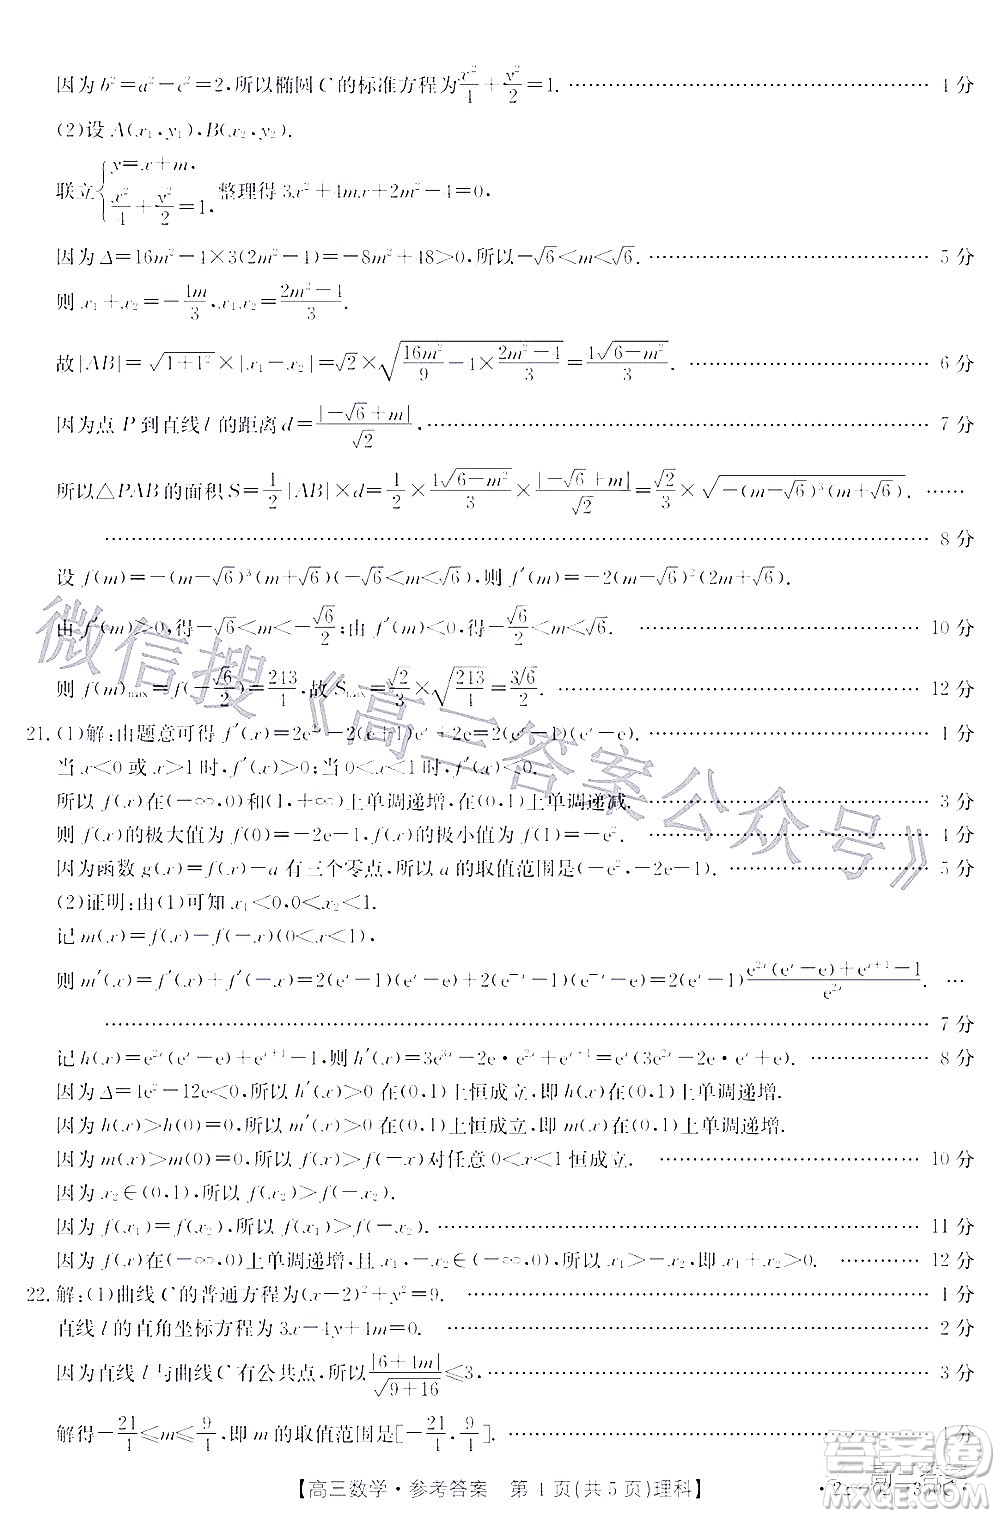 因为b²=a²-c²=2,所以椭圆C的标准方程为x²/4+y²/2=1. …… 4分
(2)设A(x₁,y₁),B(x₂,y₂).
联立{y=x+m, x²/4+y²/2=1, 整理得3x²+4mx+2m²-4=0,
因为Δ=16m²-4×3(2m²-4)=-8m²+48>0,所以-√6<m<√6. …… 5分
则x₁+x₂=-4m/3,x₁x₂=(2m²-4)/3.
故|AB|=√(1+1²)×|x₁-x₂|=√2×√(16m²/9-4×(2m²-4)/3)=4√(6-m²)/3. …… 6分
因为点P到直线l的距离d=|-√6+m|/√2, …… 7分
所以△PAB的面积S=1/2|AB|×d=1/2×4√(6-m²)/3×|-√6+m|/√2=√2/3×√(-(m-√6)³(m+√6)). ……
…… 8分
设f(m)=-(m-√6)³(m+√6)(-√6<m<√6),则f′(m)=-2(m-√6)²(2m+√6).
由f′(m)>0,得-√6<m<-√6/2;由f′(m)<0,得-√6/2<m<√6. …… 10分
则f(m)max=f(-√6/2)=243/4,故Smax=√2/3×√(243/4)=3√6/2. …… 12分
21.(1)解:由题意可得f′(x)=2e²ˣ-2(e+1)eˣ+2e=2(eˣ-1)(eˣ-e). …… 1分
当x<0或x>1时,f′(x)>0;当0<x<1时,f′(x)<0.
所以f(x)在(-∞,0)和(1,+∞)上单调递增,在(0,1)上单调递减. …… 3分
则f(x)的极大值为f(0)=-2e-1,f(x)的极小值为f(1)=-e². …… 4分
因为函数g(x)=f(x)-a有三个零点,所以a的取值范围是(-e²,-2e-1). …… 5分
(2)证明:由(1)可知x₁<0,0<x₂<1.
记m(x)=f(x)-f(-x)(0<x<1),
则m′(x)=f′(x)+f′(-x)=2(eˣ-1)(eˣ-e)+2(e⁻ˣ-1)(e⁻ˣ-e)=2(eˣ-1)(e²ˣ(eˣ-e)+eˣ⁺¹-1)/e²ˣ. …
…… 7分
记h(x)=e²ˣ(eˣ-e)+eˣ⁺¹-1,则h′(x)=3e³ˣ-2e·e²ˣ+e·eˣ=eˣ(3e²ˣ-2e·eˣ+e). …… 8分
因为Δ=4e²-12e<0,所以h′(x)>0在(0,1)上恒成立,即h(x)在(0,1)上单调递增.
因为h(x)>h(0)=0,所以m′(x)>0在(0,1)上恒成立,即m(x)在(0,1)上单调递增.
因为m(x)>m(0)=0,所以f(x)>f(-x)对任意0<x<1恒成立. …… 10分
因为x₂∈(0,1),所以f(x₂)>f(-x₂).
因为f(x₁)=f(x₂),所以f(x₁)>f(-x₂). …… 11分
因为f(x)在(-∞,0)上单调递增,且x₁,-x₂∈(-∞,0),所以x₁>-x₂,即x₁+x₂>0. …… 12分
22.解:(1)曲线C的普通方程为(x-2)²+y²=9. …… 1分
直线l的直角坐标方程为3x-4y+4m=0. …… 2分
因为直线l与曲线C有公共点,所以|6+4m|/√(9+16)≤3, …… 3分
解得-21/4≤m≤9/4,即m的取值范围是[-21/4,9/4]. …… 4分
【高三数学·参考答案 第4页(共5页)理科】
微信搜《高三答案公众号》
答案圈